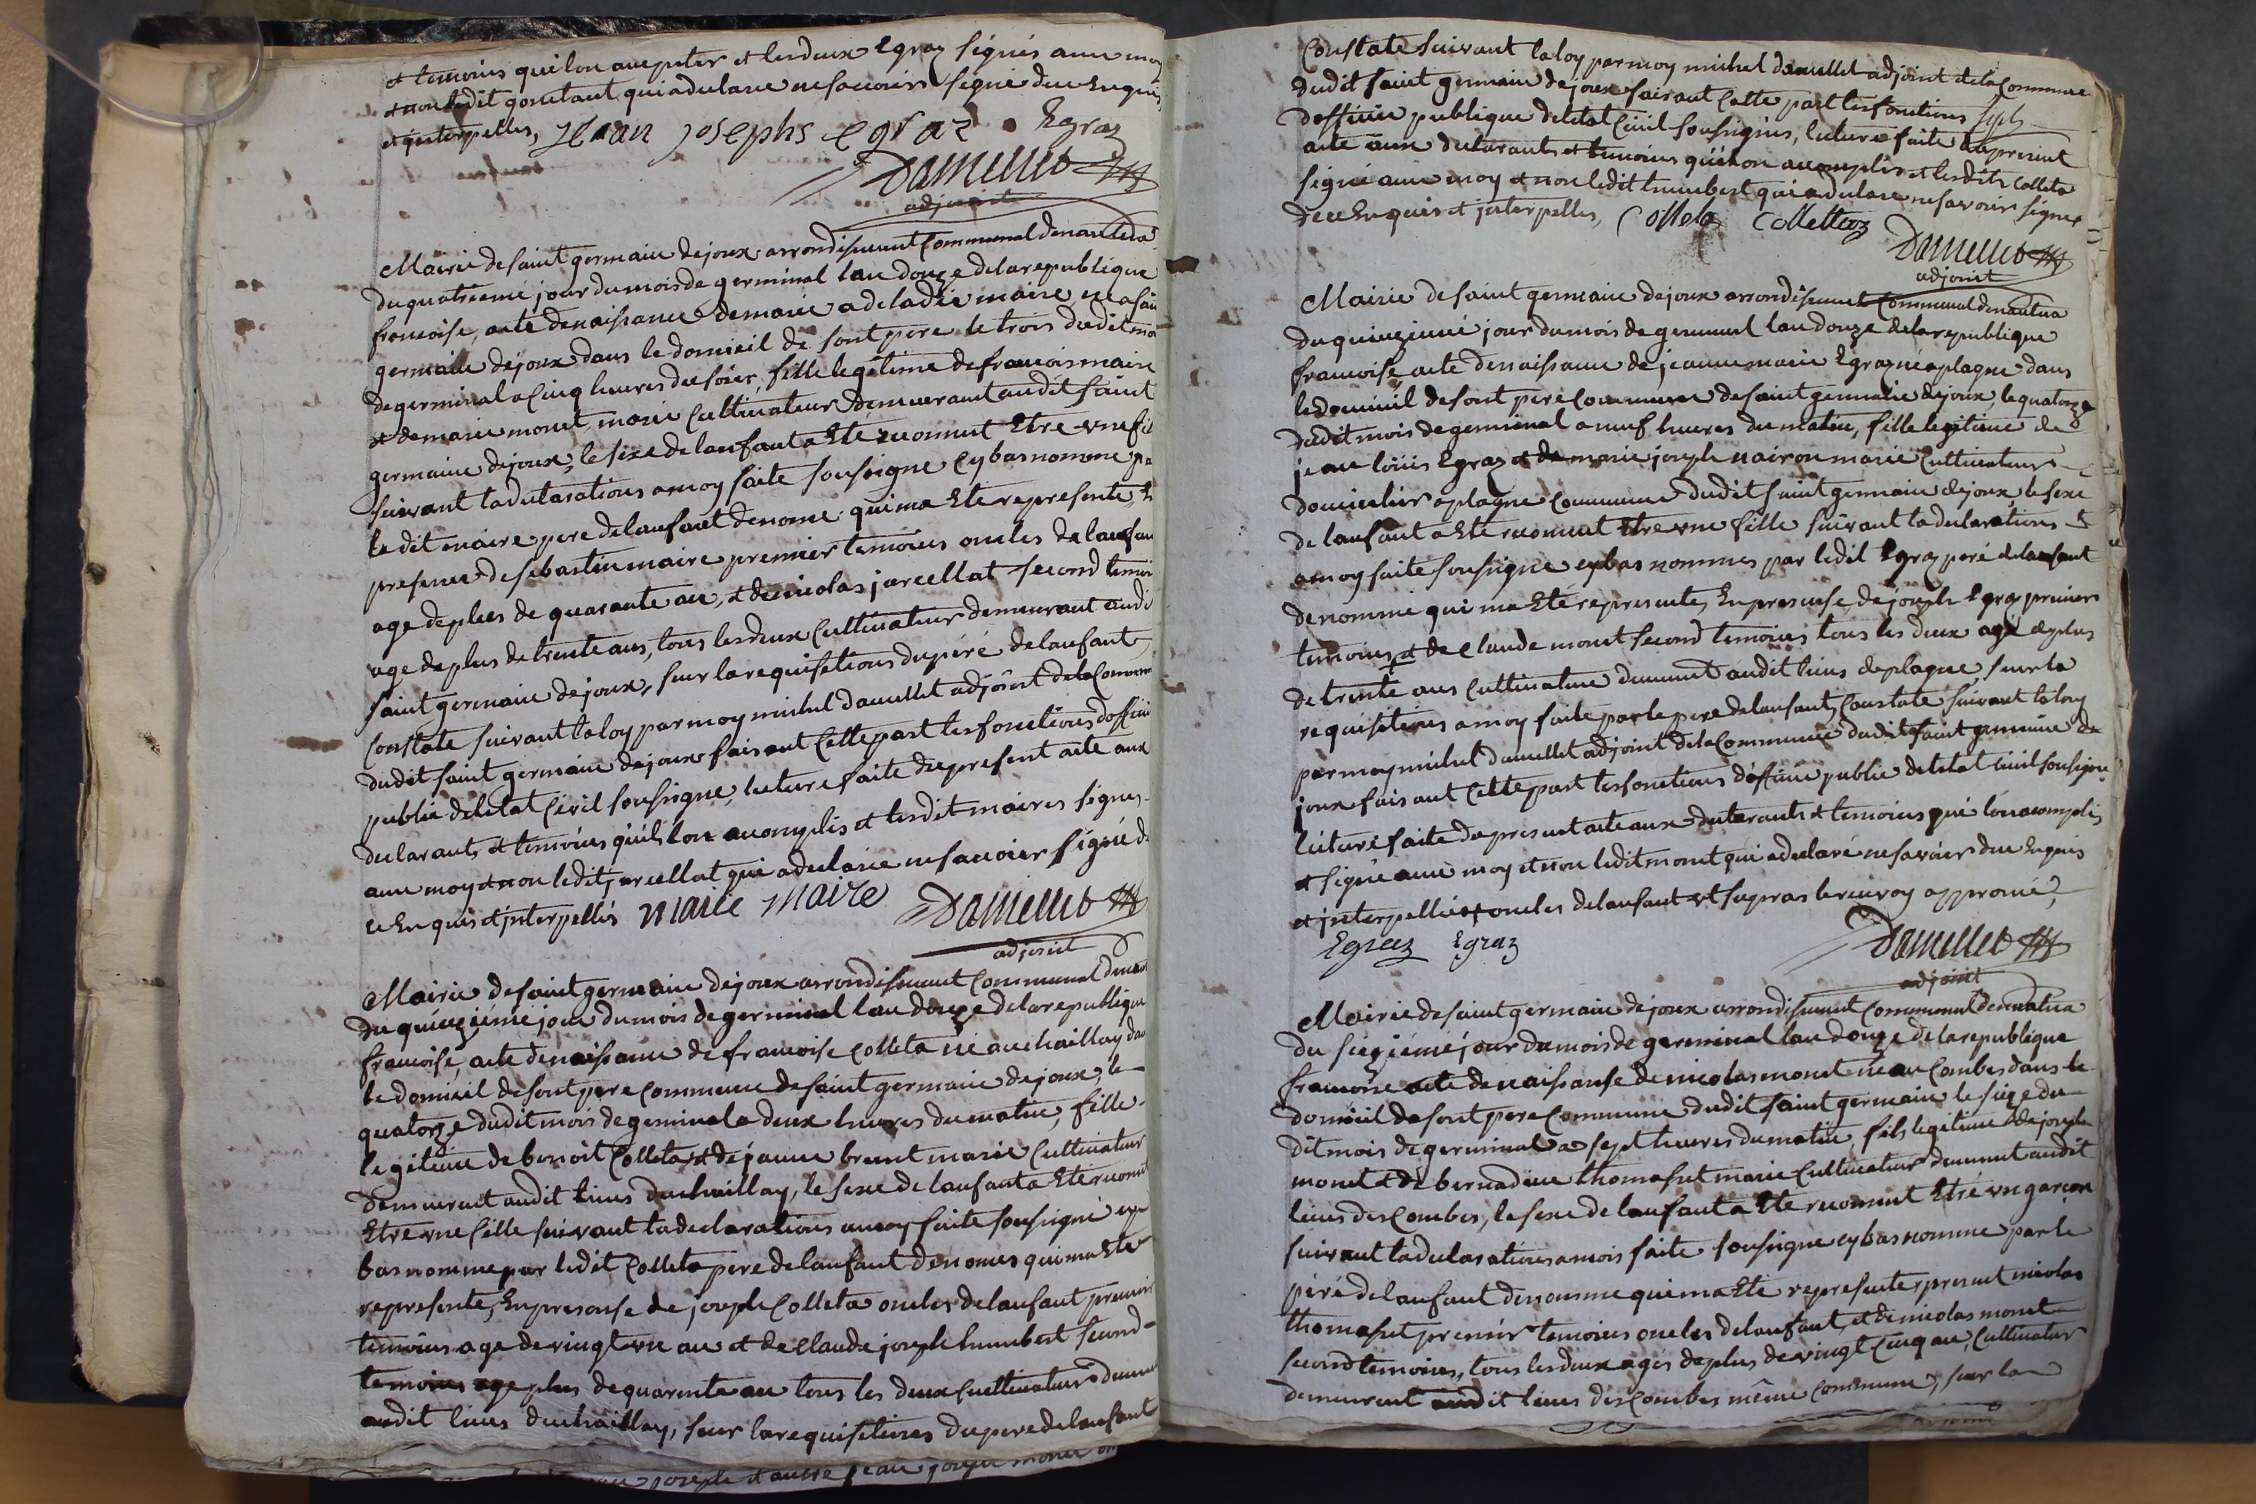 et temoins quilon aucpuler et lesdeux Egraz signés avec moy
et non ledit goustant qui adeclare nesavoirs signe dece Enquis
et interpelles, Jean josephs egraz Egraz
Damellet
adjoint
Mairie de saint germain dejoux arrondissement Communal denantua
du quatrieme jour dumois de germinal lan douze delarepublique
francoise, acte denaissance demarie adeladie maire nee a sain
germain dejoux dans le domicil de sont pere le trois dudit moi
degerminal a Cinq heures du soier, fille legitime de francois maire
et demarie monet marié Cultivateur demeurant audit saint
germain dejoux, le sexe de lanfant a Eté reconnut Etre vne fil
suivant ladeclarations amoy faite soussigne cy bas nomme pa
le dit maire pere delanfant denome qui ma Eté represente, En
presence de sebastien maire premier temoins oncles de lanfan
age deplus de quarante an, et de nicolas jarcellat second temoi
age deplus de trente ans, tous lesdeux Cultivateur demeurant audi
saint germain dejoux, sur larequisetions dupéré delanfant,
Constate suivant laloy par moy michel damellet adjoint dela Commun
dudit saint germain dejoux faisant Cette part les fonctions doffici
public deletat Civil soussigne, lecture faite dupresent acte aux
declarants et temoins quils lon acomplis et lesdit maires signes
avec moy et non ledit jarcellat qui adeclarée nesavoier signé de
ce Enquis et interpellés marie maire Damellet
adjoint
Mairie de saint germain dejoux arrondissement Communal denant
du quinziéme jour dumois de germinal lan douze delarepublique
francoise, acte denaissance de francoise Colleta ne auchaillay dan
le domicil de sont pere Commune desaint germain dejoux, le
quatorze dudit mois degerminal a deux heures dumatin, fille
legitime de benoit Colleta et de jeanne brunet marie Cultivateur
demeurant audit lieus duchaillay, le sexe de lanfant a Eté reconnut
Etre vne fille suivant ladeclarations amoy faite soussigné cy
bas nomme par ledit Colleta pere delanfant denomés qui ma Eté
represente, En presense de joseph Colleta oncles delanfant premier
temoins age de vingt vn an et de Claude joseph humbert second
temoins age plus dequarente an tous les deux Cultivateur demeu
audit lieus duchaillay, sur larequisetions dupere delanfant
Constate suivant laloy par moy michel damellet adjoint dela Commune
dudit saint germain dejoux faisant Cette part les fonctions
dofficie publique deletat Civil soussignes, lecture faite dupresent
acte aux declarants et temoins quilon acomplis et lesdits Colleta
signé avec moy et non ledit humbert qui adeclare nesavoir signer
dece Enquis et interpelles, Colleta Collettaz
Damellet
adjoint
Mairie de saint germain dejoux arrondissement Communal denantua
du quinziemé jour dumois de germinal lan douze delarepublique
francoise acte denaissance de jeanne marie Egraz né aplagne dans
ledomicil desont peré Commune desaint germain dejoux, le quatorze
dudit mois degerminal a neuf heures du matin, fille legitime de
jean loüis Egraz et de marie joseph nairon marie Cultivateurs
domicelier aplagne Commune dudit saint germain dejoux le sexe
de lanfant a Eté reconnut Etre vne fille suivant ladeclarations
amoy faite soussigne cy bas nommes par ledit Egraz peré delanfant
denommé qui ma Eté represente, En presense de joseph Egraz premier
temoins et de Claude monet second temoins tous les deux agé deplus
de trente ans Cultivateur demeurt audit lieus deplagne, sur la
requisetions amoy faite par le pere delanfant, Constate suivant laloy
par moy michel damellet adjoint dela Commune dudit saint germain de
joux faisant Cette part les fonctions dofficie public deletat Civil soussigne
lecture faite dupresent acte aux declarants et temoins que lon acomplis
et signé avec moy et non ledit monet qui adeclaré nesavoir dece Enquis
et interpellé oncles delanfant et supras lerenvoy approuvé,
Egraz Egraz Damellet
adjoint
Mairie de saint germain dejoux arrondissement Communal denantua
du siéziéme jour dumois de germinal lan douze delarepublique
francoise acte denaissanse de nicolas monet né au Combes dans le
domicil de sont pere Commune dudit saint germain le sieze du
dit mois degerminal a sept heures dumatin, fils legitime de joseph
monet et de bernadine thomasset marie Cultivateur demeurt audit
lieus des Combes, le sexe de lanfant a Eté reconnut Etre vn garcon
suivant ladeclarations a mois faite soussigne cy bas nomme par le
péré delanfant denomme qui ma Eté represente, present nicolas
thomasset premier temoins oncles delanfant, et de nicolas monet
second temoins, tous les deux agés deplus de vingt Cinq an, Cultivateur
demeurent audit lieus des Combes même Commune, sur la